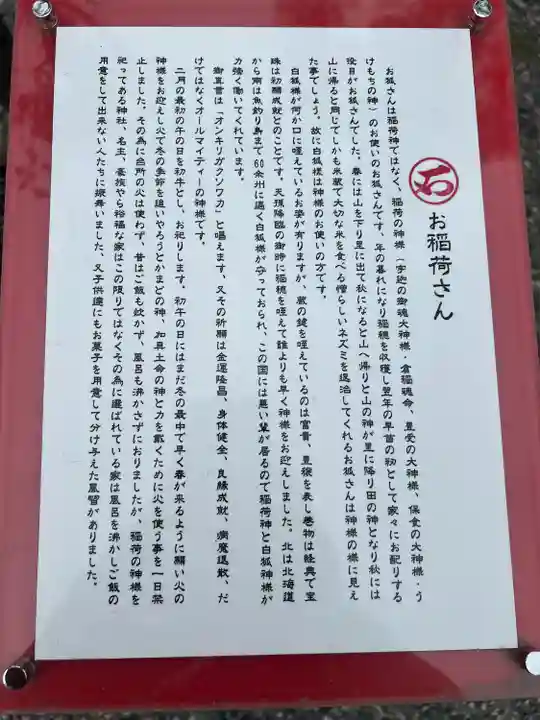 石
お稲荷さん
お狐さんは稲荷神ではなく、稲荷の神様(宇迦の御魂大神様・倉稲魂命、豊受の大神様、保食の大神様・う
けもちの神)のお使いのお狐さんです。年の暮れになり稲穂を収穫し翌年の早苗の籾として家々にお配りする
役目がお狐さんでした。春には山を下り里に出て秋になると山へ帰りと山の神が里に降り田の神となり秋には
山に帰ると同じでしかも米蔵で大切な米を食べる憎らしいネズミを退治してくれるお狐さんは神様の様に見え
た事でしょう。故に白狐様は神様のお使いの方です。
白狐様が何か口に咥えているお姿が有りますが、蔵の鍵を咥えているのは富貴、豊穣を表し巻物は経典で宝
珠は初願成就とのことです。天孫降臨の御時に稲穂を咥えて誰よりも早く神様をお迎えしました。北は北海道
から南は魚釣り島まで60余州に遍く白狐様が守っておられ、この国には悪い輩が居るので稲荷神と白狐神様が
力強く働いてくれています。
御真言は「オンキリガクソワカ」と唱えます、又その祈願は金運隆昌、身体健全、良縁成就、病魔退散、だ
けではなくオールマイティーの神様です。
二月の最初の午の日を初午とし、お祀りします。初午の日にはまだ冬の最中で早く春が来るように願い火の
神様をお迎えし火で冬の季節を追いやろうとかまどの神、加具土命の神と力を戴くために火を使う事を一日禁
止しました。その為に台所の火は使わず、昔はご飯も炊かず、風呂も沸かさずにおりましたが、稲荷の神様を
祀ってある神社、名主、豪族やら裕福な家はこの限りではなくその為に選ばれている家は風呂を沸かしご飯の
用意をして出来ない人たちに振舞いました、又子供達にもお菓子を用意して分け与えた風習がありました。